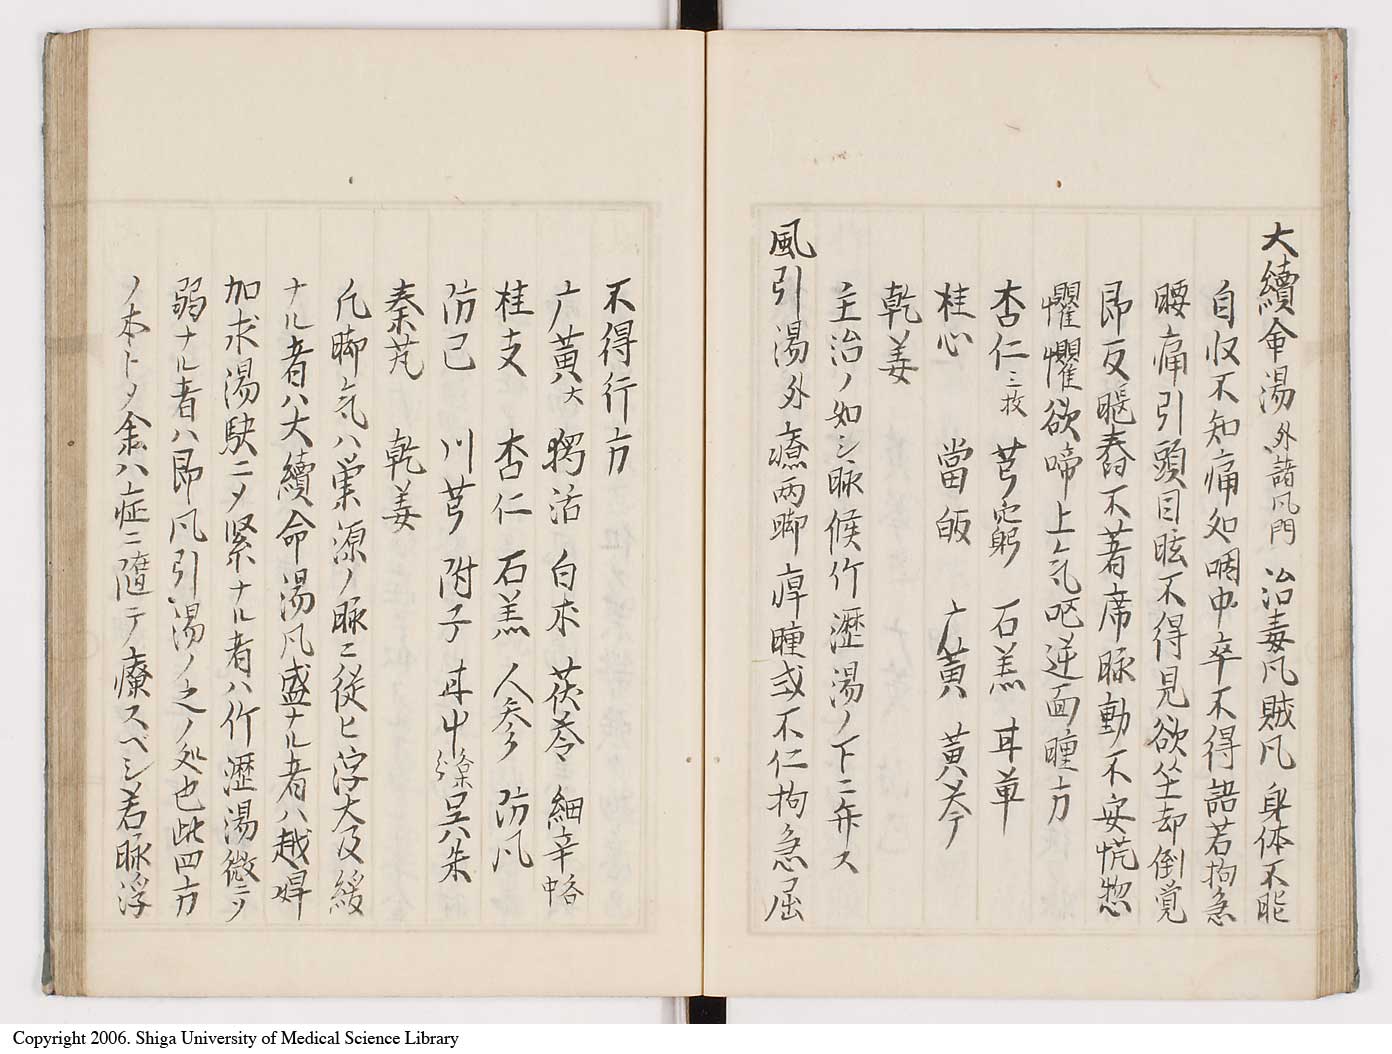 大續命湯外諸凡門 治毒凡賊凡身体不能
自収不知痛処咽中卒不得語若拘急
腰痛引頭目眩不得見欲坐却倒覚
即反𨈓春不著席脉動不安慌惣
懼懼欲啼上气呕逆面瞳方
杏仁三枚 芎窮 石羔 耳草
桂心 當皈 广黄 黄芩
乾姜
主治ノ如シ脉候竹瀝湯ノ下ニ弁ス
風引湯外療両脚痺瞳或不仁拘急屈
不得行方
广黄大 獨活 白术 茯苓 細辛各中
桂支 杏仁 石羔 人参 防凡
防已 川芎 附子 耳中 呈八朱
秦芃 乾姜
凡脚气ハ巣源ノ脉ニ従ヒ浮大及緩
ナル者ハ大續命湯凡盛ナル者ハ越婢
加求湯駃ニメ緊ナル者ハ竹瀝湯微ニメ
弱ナル者ハ即凡引湯ノ之ノ処也此四方
ノ本トメ余ハ症ニ隨テ療スベシ若脉浮
Copyright 2006. Shiga University of Medical Science Library